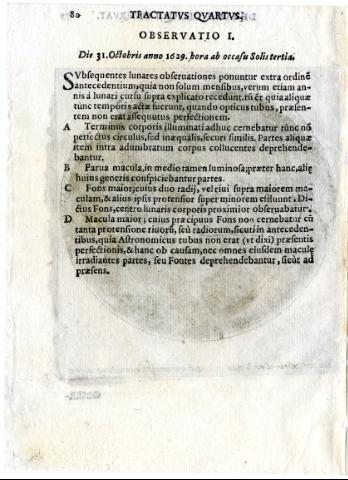 80 TRACTATVS QVARTVS.
OBSERVATIO I.
Die 31. Octobris anno 1629. hora ab occasu Solis tertia.
SVbsequentes lunares obseruationes ponuntur extra ordinẽ
antecedentium, quia non solum mensibus, verum etiam an-
nis à lunari cursu supra explicato recedunt. tũ ẽt quia aliquæ
tũnc temporis actæ fuerunt, quando opticus tubus, præsen-
tem non erat assequutus perfectionem.
A Terminus corporis illuminati adhuc cernebatur tũnc nõ
perfectus circulus, sed inæqualis, securi similis. Partes aliquæ
item intra adumbratum corpus collucentes deprehende-
bantur.
B Parua macula, in medio tamen luminosa; præter hanc, alię
huius generis conspiciebantur partes.
C Fons maior; cuius duo radij, vel riui supra maiorem ma-
culam, & alius ipsis protensior super minorem effluunt. Di-
ctus Fons, centro lunaris corporis proximior obseruabatur.
D Macula maior; cuius præcipuus Fons non cernebatur cũ
tanta protensione riuorũ, seù radiorum, sicuti in anteceden-
tibus, quia Astronomicus tubus non erat (vt dixi) præsentis
perfectionis, & hanc ob causam, nec omnes eiusdem maculę
irradiantes partes, seu Fontes deprehendebantur, sicùt ad
præsens.